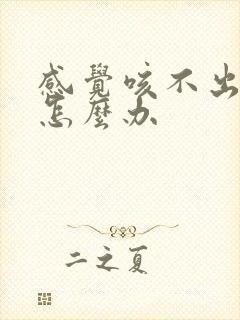 感覺咳不出
怎麼办
二之夏